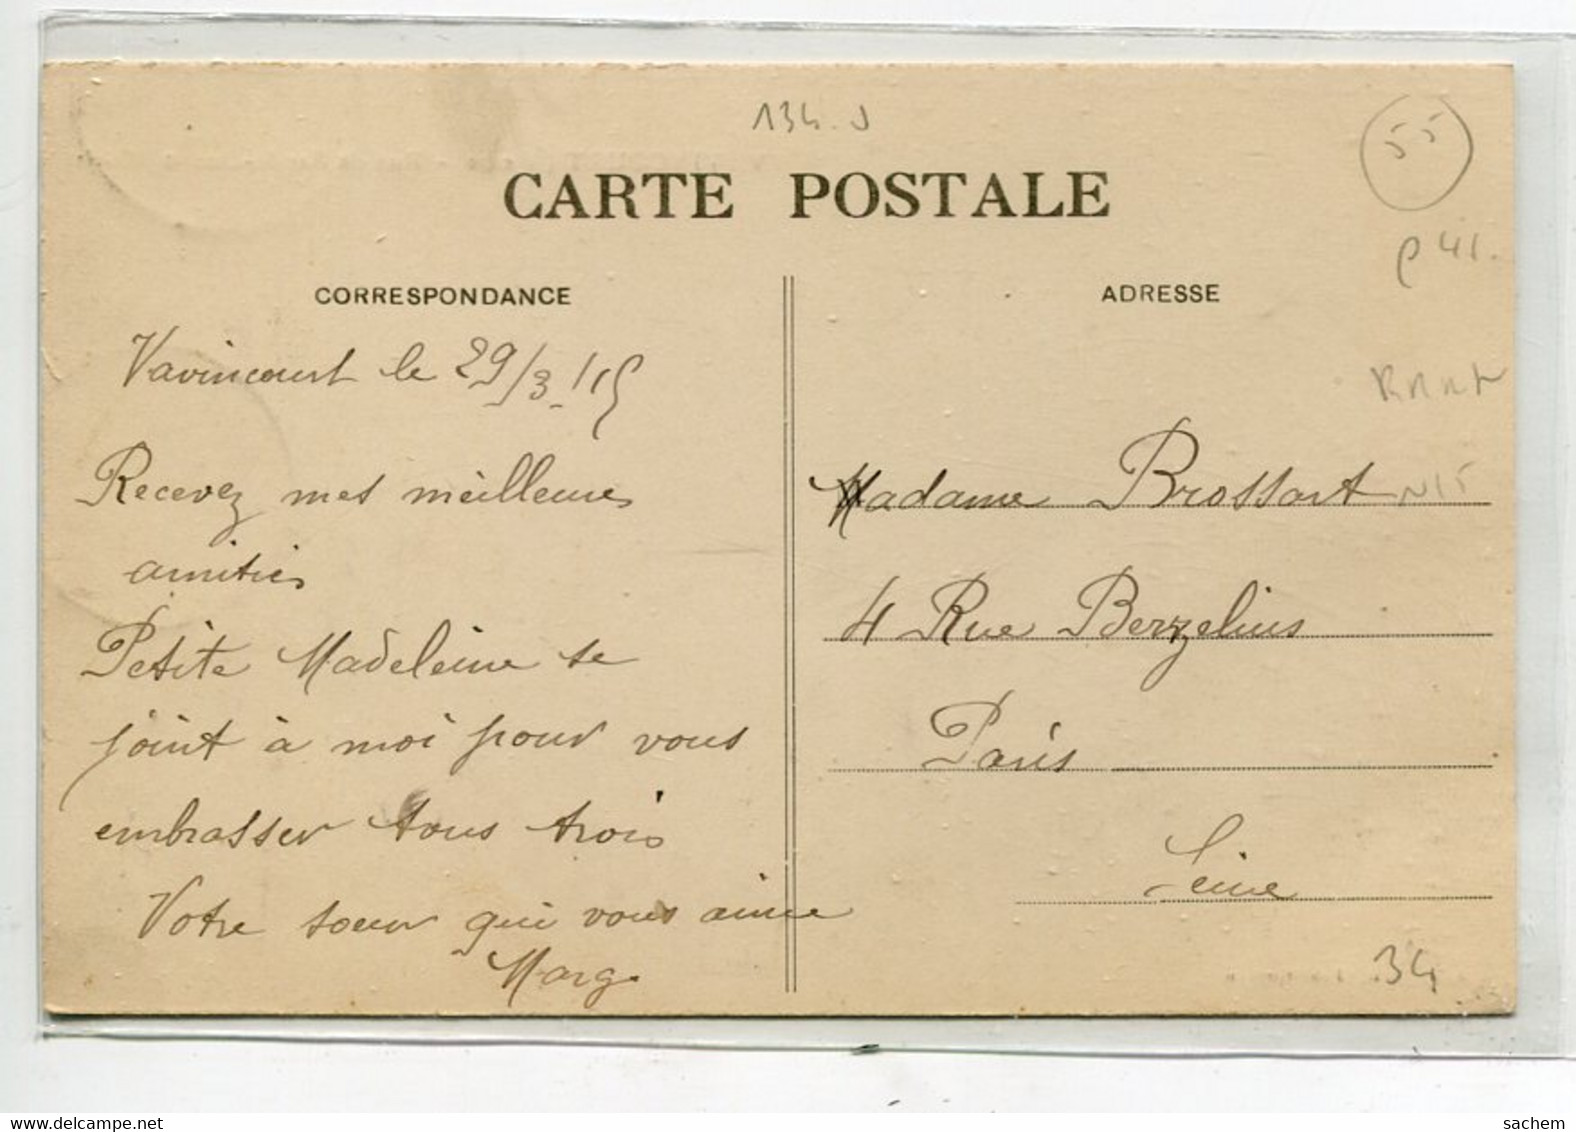 134. J
55
CARTE POSTALE
P 41.
CORRESPONDANCE
Vavincourt le 29/3/15
Recevez mes meilleures
amitiés
Petite Madeleine se
joint à moi pour vous
embrasser tous trois
Votre soeur qui vous aime
Marg.
ADRESSE
Madame Brossart
4 Rue Berzelius
Paris
Seine
34
sachem